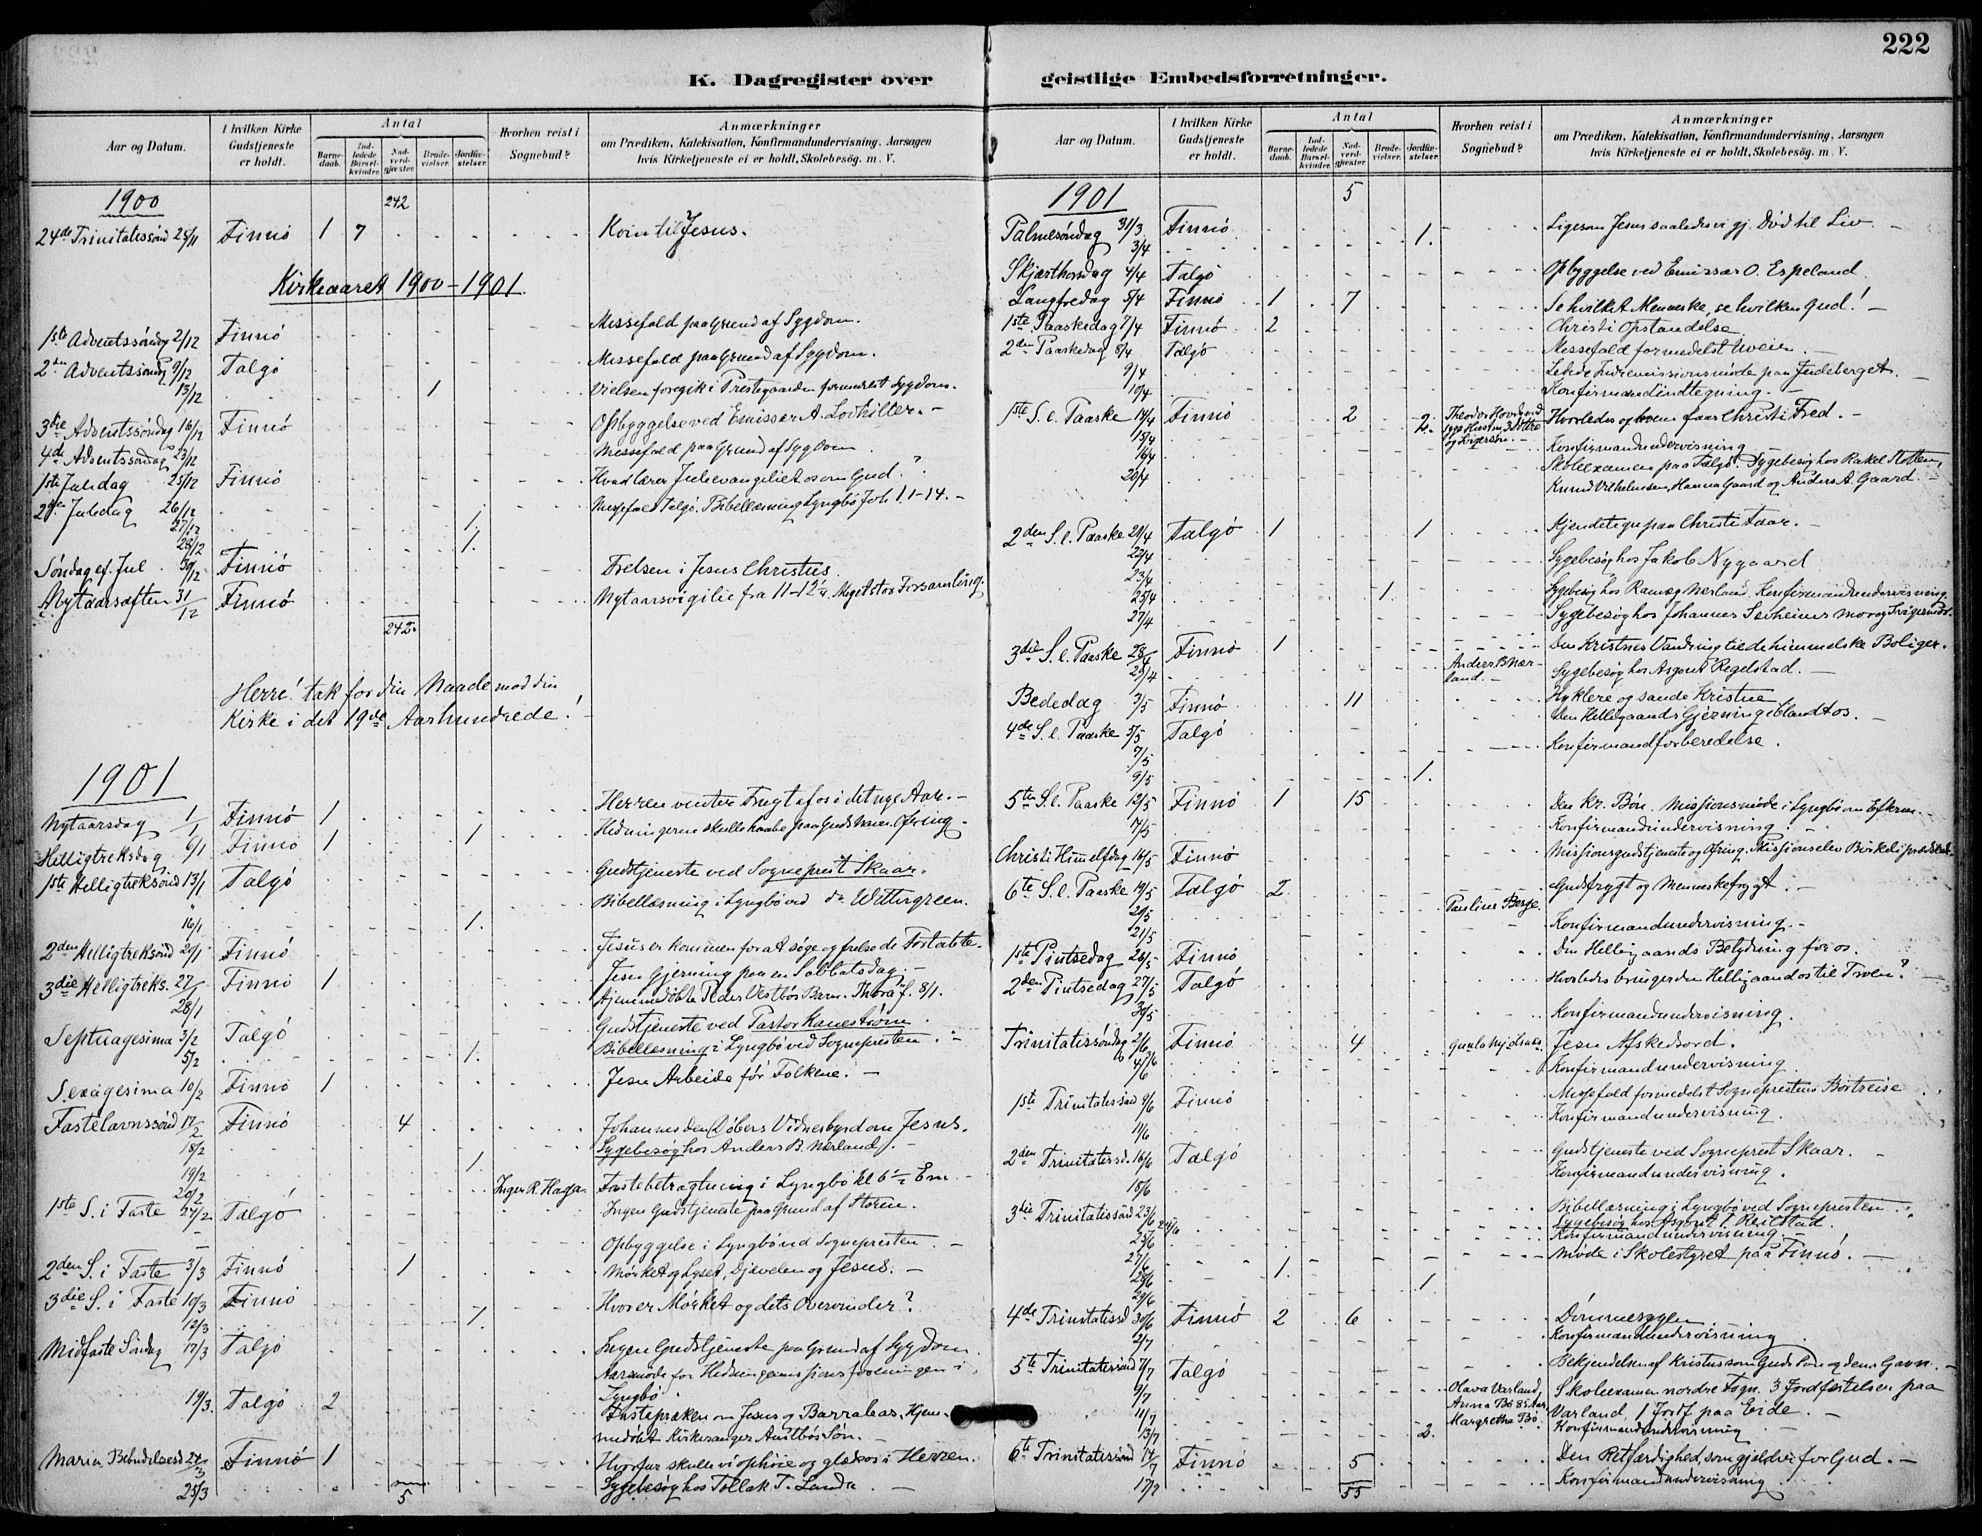 222
K. Dagregister over
geistlige Embedsforretninger.
Aar og Datum.
I hvilken Kirke Gudstjeneste er holdt.
Antal
Barnedaab.
Indledede Barselkvinder.
Nadverdgjæster
Brudevielser.
Jordfæstelser.
Hvorhen reist i Sognebud?
Anmærkninger
om Prædiken, Katekisation, Konfirmandundervisning, Aarsagen
hvis Kirketjeneste ei er holdt, Skolebesøg. m. V.
1900 242
24de Trinitatissönd 25/11 Finnö 1 7 Kom til Jesus.
Kirkeaaret 1900-1901.
1ste Adventssöndag 2/12 Finnö Messefald paa Grund af Sygdom.
2den Adventssöndag 9/12 Talgö Messefald paa Grund af Sygdom.
13/12 1 Vielsen foregik i Prestegaarden formedelst Sygdom.
3die Adventssöndag 16/12 Finnö Opbyggelse ved Emissær A. Lothiller. -
4de Adventssöndag 23/12 Messefald paa Grund af Sygdom
1ste Juledag 25/12 Finnö Hvad lærer Juleevangeliet os om Gud?
2den Juledag 26/12 Messefald Talgö. Bibellæsning Lyngbö Joh 1 1-14. -
27/12 1.
28/12 1.
Söndag ef. Jul 30/12 Finnö Frelsen i Jesus Christus.
Nytaarsaften 31/12 Finnö Nytaarsvigilie fra 11-12¼ Meget stor Forsamling.
242
Herre! tak for din Naade mod din
Kirke i det 19de Aarhundrede!
1901
Nytaarsdag 1/1 Finnö 1 Herren venter Frugt af os i det nye Aar. -
Helligtreksdag 6/1 Finnö 1 1 Hedningerne skulle haabe paa Guds Navn. Ofring.
1ste Helligtreksönd 13/1 Talgö Gudstjeneste ved Sogneprest Skaar.
Bibellæsning i Lyngbö ved do Wittergreen.
16/1 1.
2den Helligtreksönd 20/1 Finnö Jesus er kommen for at söge og frelse de Fortabte.
3die Helligtreks. 27/1 Finnö 1 Jesu Gjerning paa en Sabbatsdag. -
28/1 Hjemmedöbte Peder Vestbös Barn. Thora f. 8/1.
Septuagesima 3/2 Talgö Gudstjeneste ved Pastor Kanestrøm.
5/2 1. Bibellæsning i Lyngbö ved Sognepresten. -
Sexagesima 10/2 Finnö 1 Jesu Arbeide för Folkene. -
Fastelavnssönd 17/2 Finnö 4 Johannes den Döbers Vidnesbyrd om Jesus.
18/2 Sygebesög hos Anders B. Nærland.
19/2 1.
20/2 Inger R. Haga. Fastebetragtning i Lyngbö kl 6½ Em. -
1ste S. i Faste 24/2 Talgö Ingen Gudstjeneste paa Grund af Storm.
Opbyggelse i Lyngbö ved Sognepresten. -
2den S. i Faste 3/3 Finnö 1 Mörket og Lyset, Djævelen og Jesus. -
3die S. i Faste 10/3 Finnö Hvor er Mörket og dets Overvinder?
12/3 1.
Midfaste Söndag 17/3 Talgö Ingen Gudstjeneste paa Grund af Sygdom.
Aarsmöde for Hedningemissionsforeningen i
Lyngbö.
19/3. Talgö 2 Fastepræken om Jesus og Barrabas. Hjem-
medöbt Kirkesanger Austbös Sön. -
Mariæ Bebudelsesd 24/3 Finnö 1 Hvorfor skulle vi ophöie og glædes i Herren.
25/3 5 Sygebesög hos Tollak T. Landa.
Aar og Datum.
I hvilken Kirke Gudstjeneste er holdt.
Antal
Barnedaab.
Indledede Barselkvinder.
Nadverdgjæster
Brudevielser.
Jordfæstelser.
Hvorhen reist i Sognebud?
Anmærkninger
om Prædiken, Katekisation, Konfirmandundervisning, Aarsagen
hvis Kirketjeneste ei er holdt, Skolebesøg. m. V.
1901 5
Palmesöndag 31/3 Finnö Ligesom Jesus saaledes vi gj. Död til Liv. -
3/4 1.
Skjærthorsdag 4/4 Talgö Opbyggelse ved Emissær O. Espeland.
Langfredag 5/4 Finnö 1 7 Se hvilket Menneske, se hvilken Gud! -
1ste Paaskedag 7/4 Finnö 2 Christi Opstandelse
2den Paaskedag 8/4 Talgö Messefald formedelst Uveir.
9/4 Indremissionsmöde paa Judeberget.
10/4 Konfirmandindtegning. -
1ste S. e. Paaske 14/4 Finnö 2 2. Theodor Hovds Hvorledes og hvem faar Christi Fred. -
15/4 Konfirmandundervisning
16/4 Skoleexamen paa Talgö. Sygebesög hos Rakel
20/4 Knud Vilhelmsen, Hanna Gaard og Anders A. Gaard.
2den S. e. Paaske 21/4 Talgö 1 1 Kjendetegn paa Christi Faar. -
22/4 Sygebesög hos Jakob Nygaard
23/4 Sygebesög hos Nærland. Konfirmandundervisning.
25/4 1.
27/4 Sygebesög hos Johannes mor og Svigermor.
3die S. e. Paaske 28/4 Finnö 1 De Kristnes Vandring til de himmelske Boliger.
29/4 Anders B Nær-
land. - Sygebesög hos Asgaut Regelstad. -
Bededag 3/5 Finnö 11 Hyklere og sande Kristne
4de S. e. Paaske 5/5 Talgö Den Helligaands Gjerning iblandt os. -
7/5 Konfirmandforberedelse.
9/5 1.
5te S. e. Paaske 12/5 Finnö 1 15 Den kr. Bön. Missionsmöde i Lyngbö om Efterm.
17/5 Konfirmandundervisning. -
Christi Himmelfdag 16/5 Finnö Missionsgudstjeneste og Ofring. Missionselev Birkeli prædiked.
6te S. e. Paaske 19/5 Talgö 2 Gudfrygt og Menneskefrygt. -
20/5 Pauline Berge.
21/5 Konfirmandundervisning. -
1ste Pintsedag 26/5 Finnö Den Helligaands Betydning for os.
2den Pintsedag 27/5 Talgö Hvorledes bringer den Helligaand os til Troen? -
30/5 Konfirmandundervisning.
Trinitatissöndag 2/6 Finnö 4 Jesu Afskedsord.
4/6 Konfirmandundervisning.
1ste Trinitatissönd 9/6 Finnö Messefald formedelst Sogneprestens Bortreise
11/6 Konfirmandundervisning.
2den Trinitatissd. 16/6 Talgö Gudstjeneste ved Sogneprest Skaar.
18/6 Konfirmandundervisning.
3die Trinitatissönd 23/6 Bibellæsning i Lyngbö ved Sognepresten.
24/6 Sygebesög hos Asgaut T. Reilstad.
25/6 Konfirmandundervisning. -
27/6 Möde i Skolestyret paa Finnö. -
28/6 1.
29/6 1.
4de Trinitatissd 30/6 Finnö 2 6 Dömmesygen
2/7 Konfirmandundervisning
5te Trinitatissönd 7/7 Talgö Bekjendelsen af Kristus som Guds Sön og dens Gavn. -
9/7 Olava Varland, Skoleexamen nordre Sogn. 3 Jordfæstelser paa
11/7 Anna Bö 85 Aar, Varland, 1 Jordf paa Eide. -
13/7 2. Margrethe Bö Konfirmandundervisning
6te Trinitatissönd 14/7 Finnö 5 Den Retfærdighed, som gjælder for Gud. -
17/7 55 Konfirmandundervisning